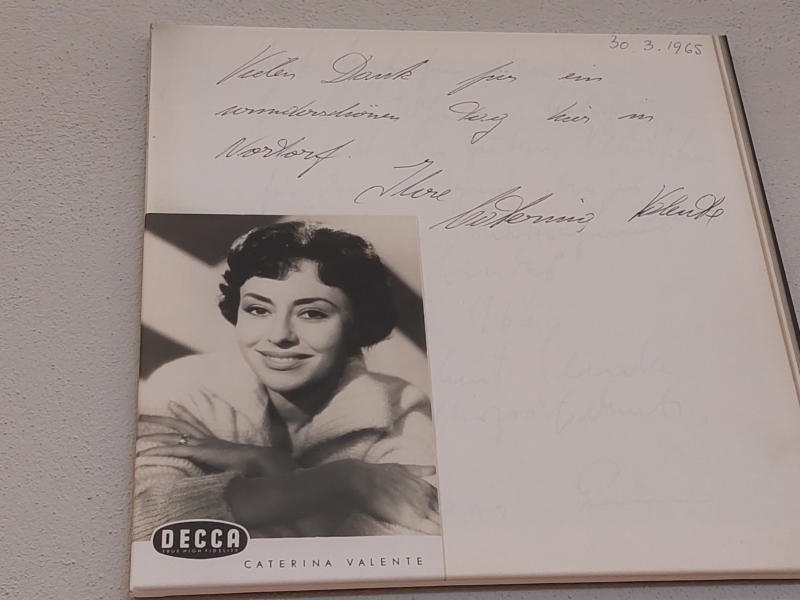 30.3.1965
Vielen Dank für ein
wunderschönen Tag hier in
Nortorf.
Ihre Caterina Valente
DECCA
TRUE HIGH FIDELITY
CATERINA VALENTE